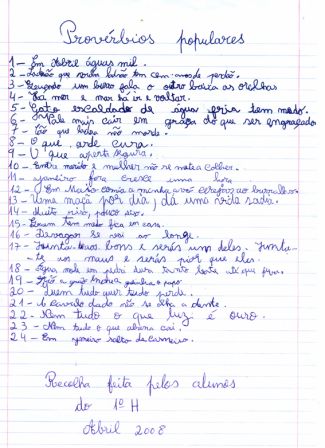 Provérbios populares
1 - Em Abril águas mil.
2 - Ladrão que rouba ladrão tem cem anos de perdão.
3 - Quando um burro fala o outro baixa as orelhas
4 - Há mar e mar há ir e voltar.
5 - Gato escaldado de água fria tem medo.
6 - Mais vale cair em graça do que ser engraçado
7 - Cão que ladra não morde.
8 - O que arde cura.
9 - O que aperta segura.
10 - Entre marido e mulher não se mete a colher.
11 - Janeiro fora cresce uma hora
12 - Em Maio comia a minha avó cerejas ao borralho.
13 - Uma maçã por dia, dá uma vida sadia.
14 - Muito riso, pouco siso.
15 - Quem tem medo fica em casa.
16 - Devagar se vai ao longe.
17 - Junta-te aos bons e serás um deles. Junta-
te aos maus e serás pior que eles.
18 - Água mole em pedra dura tanto bate até que fura.
19 - Grão a grão enche a galinha o papo.
20 - Quem tudo quer tudo perde.
21 - A cavalo dado não se olha a dente.
22 - Nem tudo o que luz é ouro.
23 - Nem tudo o que abana cai.
24 - Em janeiro salto de carneiro.
Recolha feita pelos alunos
do 1º H
Abril 2008